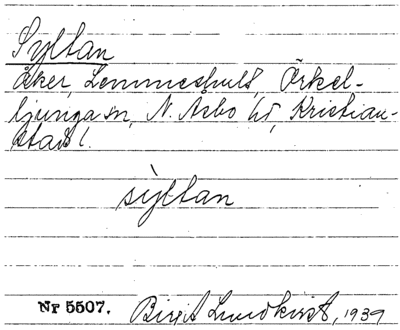 Syltan
åker, Lemmeshult, Örkel-
ljunga sn, N. Åsbo hd, Kristian-
stads l.
sỳltan
Nr 5507. Birgit Lundkvist, 1939